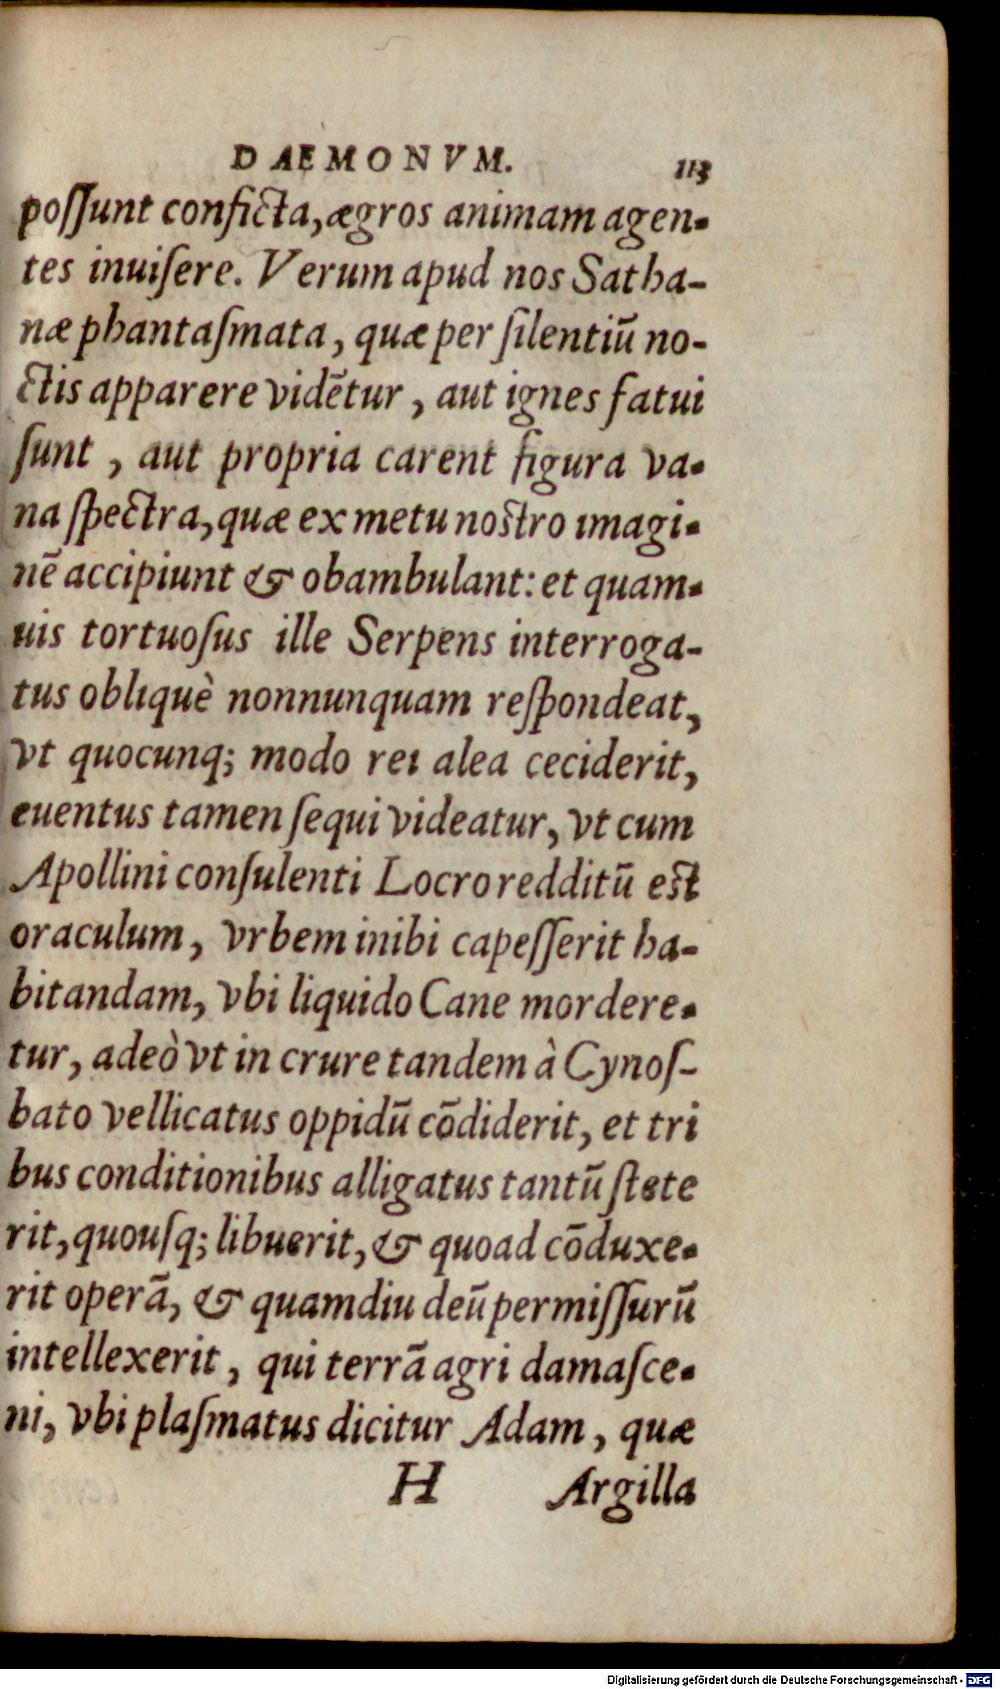 DAEMONVM. 113
poſſunt conficta, ægros animam agen-
tes inuiſere. Verum apud nos Satha-
næ phantaſmata, quæ per ſilentiū no-
ctis apparere vidētur, aut ignes fatui
ſunt, aut propria carent figura va-
na ſpectra, quæ ex metu noſtro imagi-
nē accipiunt & obambulant: et quam-
uis tortuoſus ille Serpens interroga-
tus obliquè nonnunquam reſpondeat,
vt quocunq; modo rei alea ceciderit,
euentus tamen ſequi videatur, vt cum
Apollini conſulenti Locro redditū eſt
oraculum, vrbem inibi capeſſerit ha-
bitandam, vbi liquido Cane mordere-
tur, adeò vt in crure tandem à Cynoſ-
bato vellicatus oppidū cōdiderit, et tri
bus conditionibus alligatus tantū ſtete
rit, quouſq; libuerit, & quoad cōduxe-
rit operā, & quamdiu deū permiſſurū
intellexerit, qui terrā agri damaſce-
ni, vbi plaſmatus dicitur Adam, quæ
H Argilla
Digitalisierung gefördert durch die Deutsche Forschungsgemeinschaft - DFG